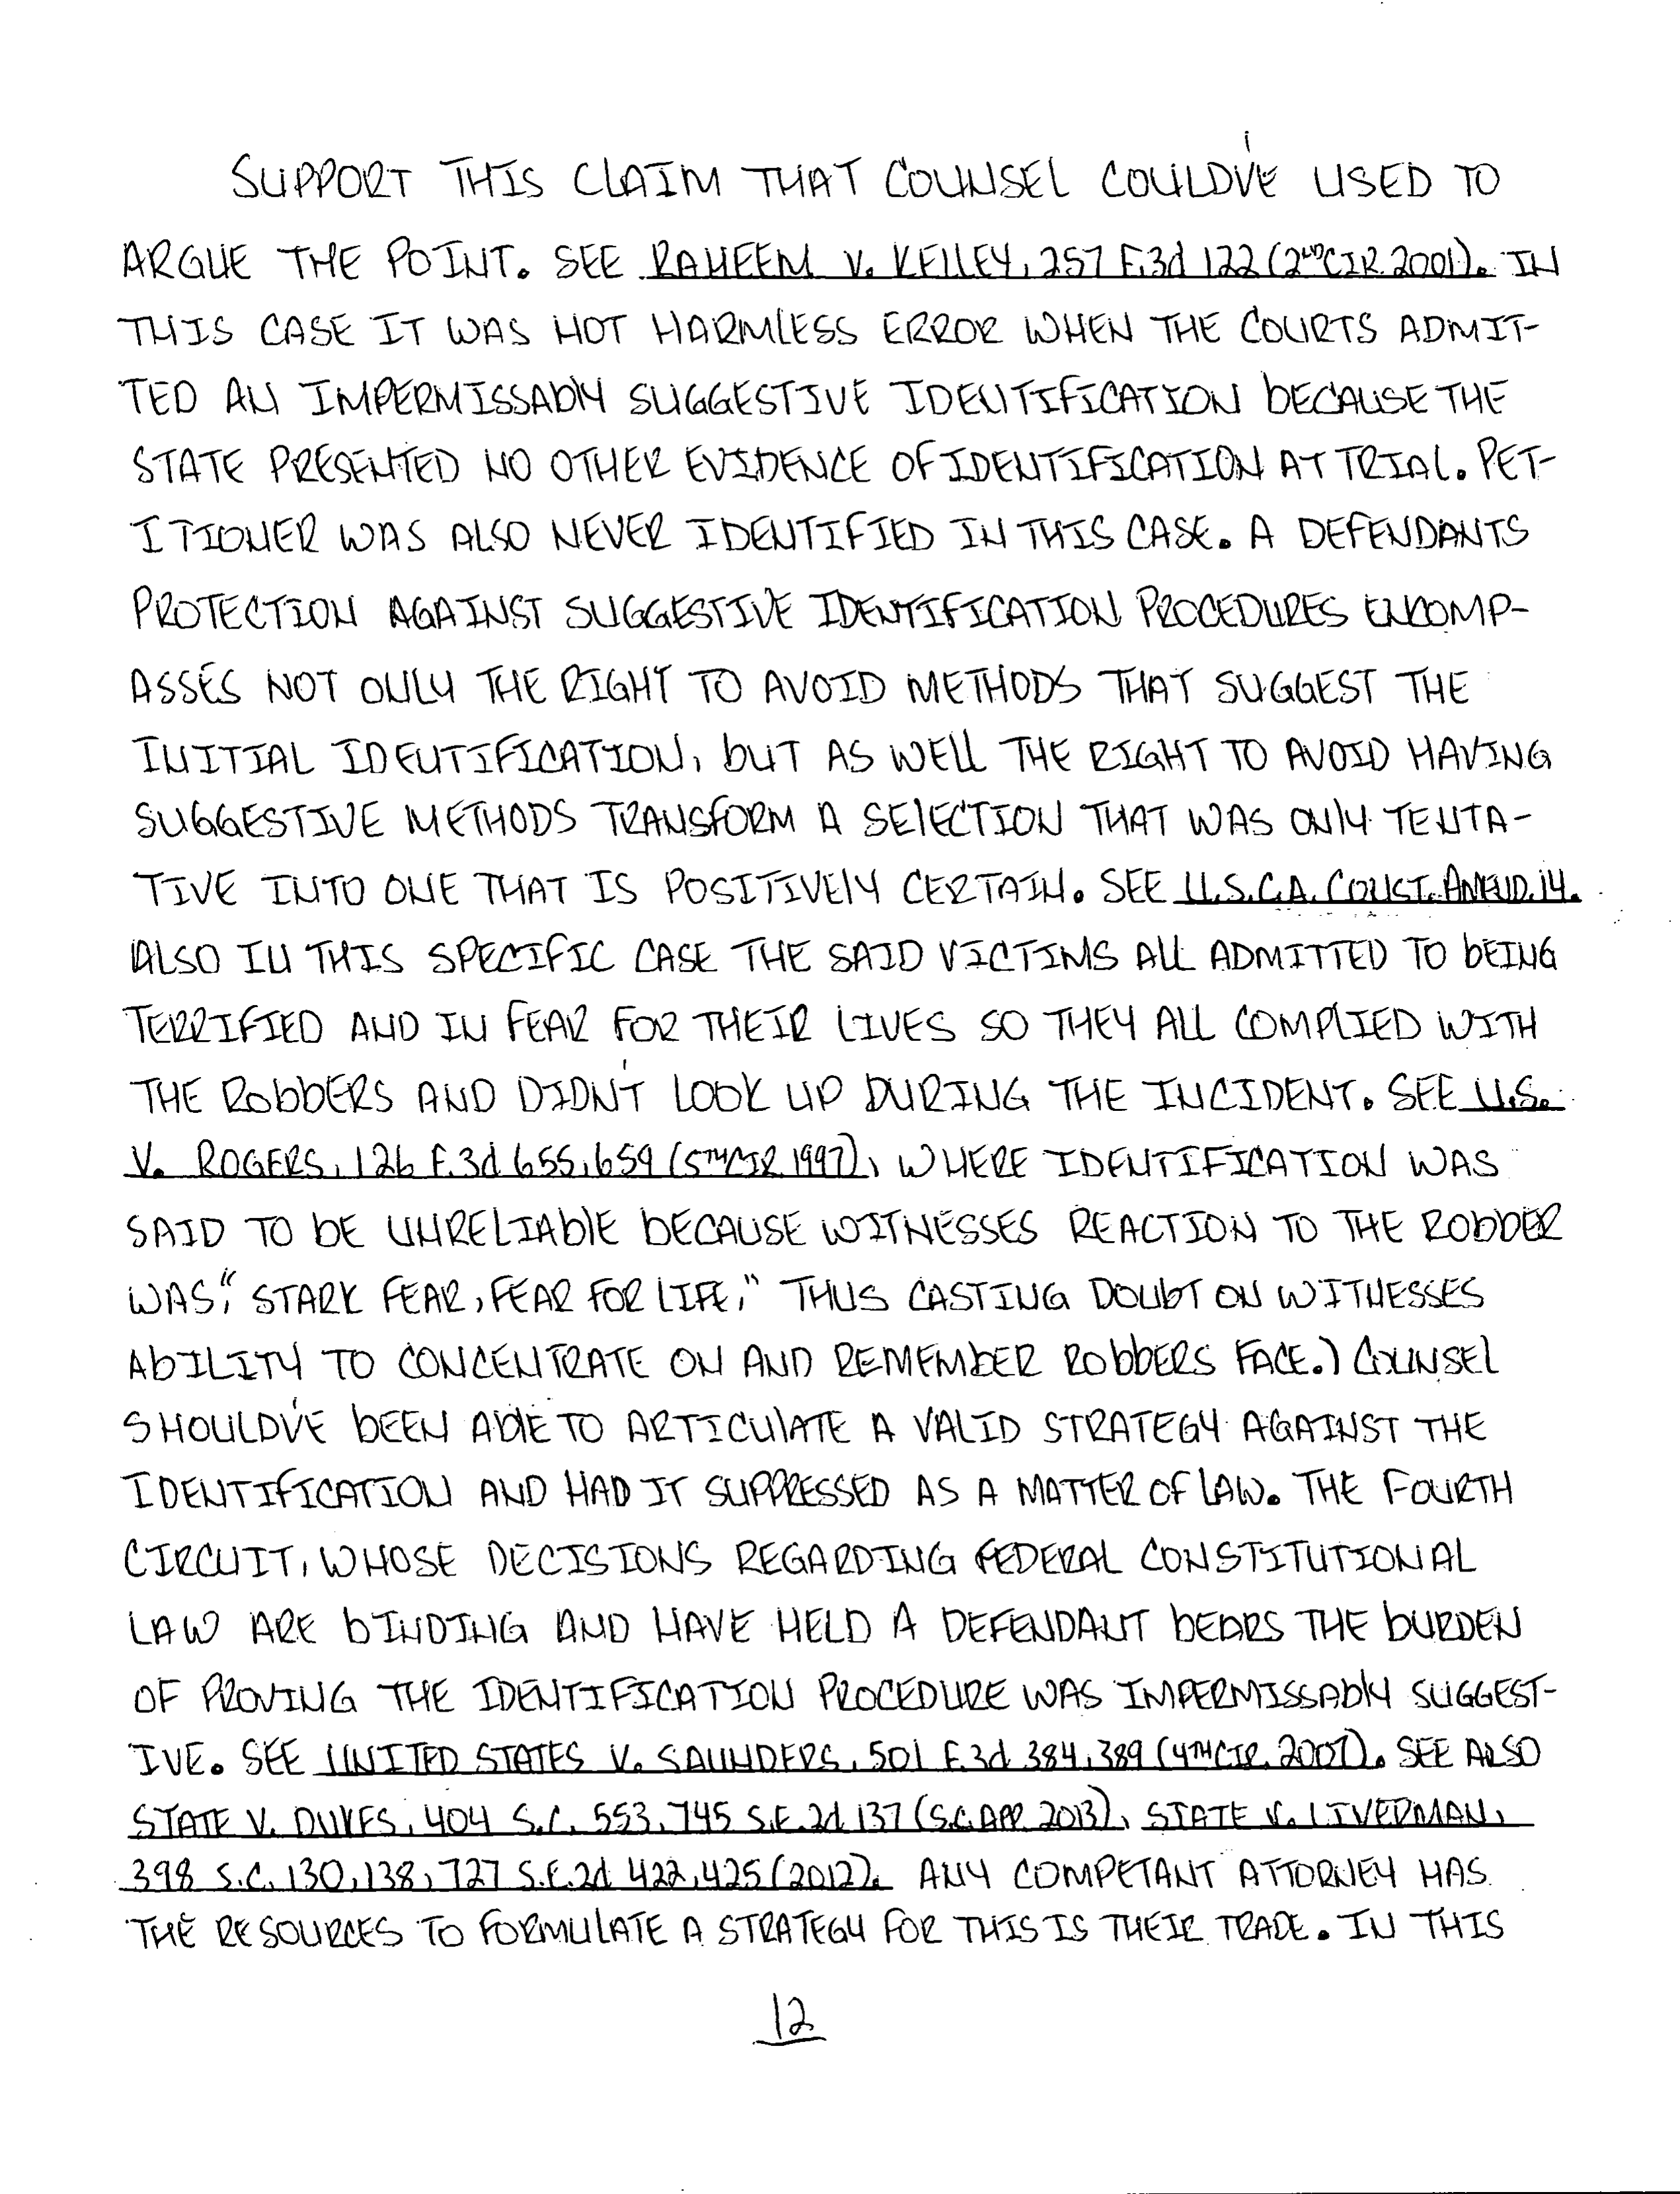 SUPPORT THIS CLAIM THAT COUNSEL COULD'VE USED TO
ARGUE THE POINT. SEE RAHEEM V. KELLEY, 257 F.3d 122 (2ND CIR. 2001). IN
THIS CASE IT WAS NOT HARMLESS ERROR WHEN THE COURTS ADMIT-
TED AN IMPERMISSABLY SUGGESTIVE IDENTIFICATION BECAUSE THE
STATE PRESENTED NO OTHER EVIDENCE OF IDENTIFICATION AT TRIAL. PET-
ITIONER WAS ALSO NEVER IDENTIFIED IN THIS CASE. A DEFENDANTS
PROTECTION AGAINST SUGGESTIVE IDENTIFICATION PROCEDURES ENCOMP-
ASSES NOT ONLY THE RIGHT TO AVOID METHODS THAT SUGGEST THE
INITIAL IDENTIFICATION, BUT AS WELL THE RIGHT TO AVOID HAVING
SUGGESTIVE METHODS TRANSFORM A SELECTION THAT WAS ONLY TENTA-
TIVE INTO ONE THAT IS POSITIVELY CERTAIN. SEE U.S.C.A. CONST. AMEND. 14.
ALSO IN THIS SPECIFIC CASE THE SAID VICTIMS ALL ADMITTED TO BEING
TERRIFIED AND IN FEAR FOR THEIR LIVES SO THEY ALL COMPLIED WITH
THE ROBBERS AND DIDN'T LOOK UP DURING THE INCIDENT. SEE U.S.
V. ROGERS, 126 F.3d 655, 659 (5TH CIR. 1997), WHERE IDENTIFICATION WAS
SAID TO BE UNRELIABLE BECAUSE WITNESSES REACTION TO THE ROBBER
WAS, "STARK FEAR, FEAR FOR LIFE," THUS CASTING DOUBT ON WITNESSES
ABILITY TO CONCENTRATE ON AND REMEMBER ROBBERS FACE.) COUNSEL
SHOULD'VE BEEN ABLE TO ARTICULATE A VALID STRATEGY AGAINST THE
IDENTIFICATION AND HAD IT SUPPRESSED AS A MATTER OF LAW. THE FOURTH
CIRCUIT, WHOSE DECISIONS REGARDING FEDERAL CONSTITUTIONAL
LAW ARE BINDING AND HAVE HELD A DEFENDANT BEARS THE BURDEN
OF PROVING THE IDENTIFICATION PROCEDURE WAS IMPERMISSABLY SUGGEST-
IVE. SEE UNITED STATES V. SAUNDERS, 501 F.3d 384, 389 (4TH CIR. 2007). SEE ALSO
STATE V. DUKES, 404 S.C. 553, 745 S.E.2d 137 (S.C. APP. 2013), STATE V. LIVERMAN,
398 S.C. 130, 138, 727 S.E.2d 422, 425 (2012). ANY COMPETANT ATTORNEY HAS
THE RESOURCES TO FORMULATE A STRATEGY FOR THIS IS THEIR TRADE. IN THIS
12